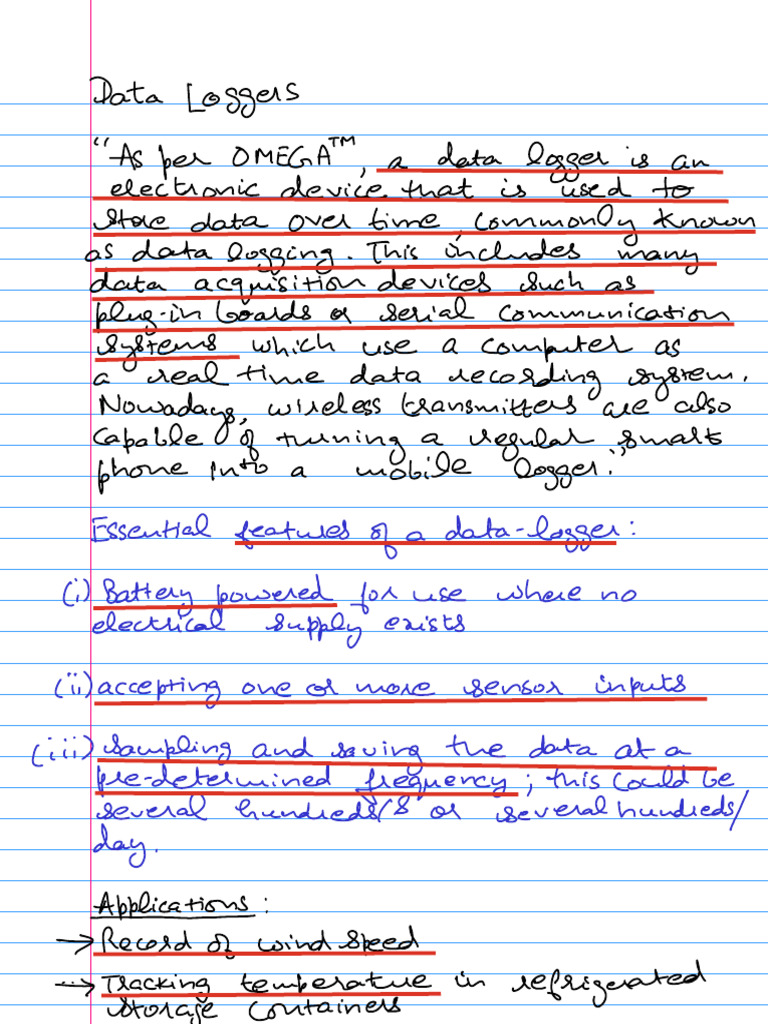 Data Loggers
"As per OMEGA™, a data logger is an
electronic device that is used to
store data over time, commonly known
as data logging. This includes many
data acquisition devices such as
plug-in boards or serial communication
systems which use a computer as
a real time data recording system.
Nowadays, wireless transmitters are also
capable of turning a regular smart
phone into a mobile logger."
Essential features of a data-logger:
(i) Battery powered for use where no
electrical supply exists
(ii) accepting one or more sensor inputs
(iii) sampling and saving the data at a
pre-determined frequency; this could be
several hundreds/s or several hundreds/
day.
Applications:
→ Record of wind speed
→ Tracking temperature in refrigerated
storage containers